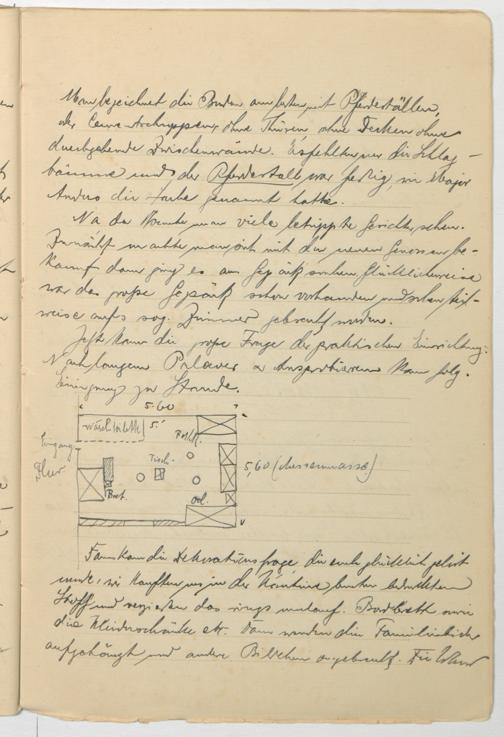 Man bezeichnet die Buden am besten mit Pferdeställen,
ohne Türen, ohne Decken ohne
durchgehende Zwischenwände. Es fehlten nur die Schlag-
bäume und der Pferdestall war fertig, wie Major
Anders die genannt hatte.
Na da konnte man viele betippte Gesichter sehen.
Zunächst machte man sich mit den neuen Genossen be-
kannt dann ging es ans Gepäck Glücklicherweise
war das große Gepäck schon vorhanden und schon
weise aufs sog. Zimmer gebracht worden.
Jetzt kam die große Frage der praktischen Einrichtung.
Nach langem Palaver u Ausprobieren kam folg.
Einigung zu Stande.
5.60
Waschtoilette
5.
Eingang
Flur
Tisch.
Bort.
5,60 (Aussenmasse)
Dann kam die Dekorationsfrage, die auch glücklich gelöst
wurde; wir kauften uns in der Kantine bunten bedruckten
Stoff und verzierten das rings umlauf. Bordbrett sowie
die Kleiderschränke etc. Dann wurden die Familienbilder
aufgehängt und andere Bildchen angebracht.